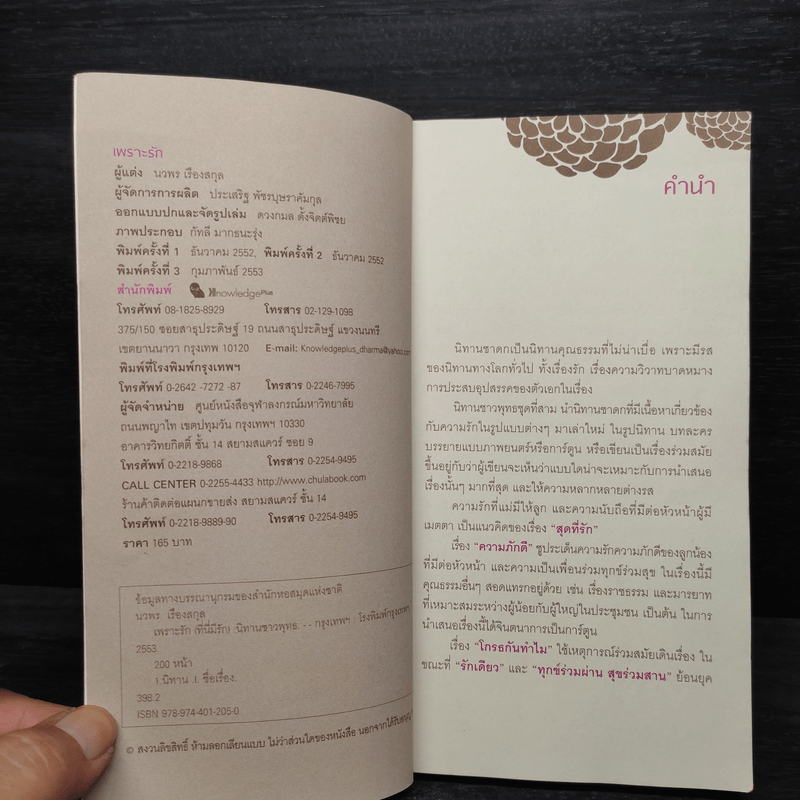 เพราะรัก
ผู้แต่ง นวพร เรืองสกุล
ผู้จัดการการผลิต ประเสริฐ พัชรบุษราคัมกุล
ออกแบบปกและจัดรูปเล่ม ดวงกมล ตั้งจิตต์พิชย
ภาพประกอบ กัทลี มากธนะรุ่ง
พิมพ์ครั้งที่ 1 ธันวาคม 2552, พิมพ์ครั้งที่ 2 ธันวาคม 2552
พิมพ์ครั้งที่ 3 กุมภาพันธ์ 2553
สำนักพิมพ์ KnowledgePlus
โทรศัพท์ 08-1825-8929 โทรสาร 02-129-1098
375/150 ซอยสาธุประดิษฐ์ 19 ถนนสาธุประดิษฐ์ แขวงนนทรี
เขตยานนาวา กรุงเทพ 10120 E-mail: Knowledgeplus_dharma@yahoo.com
พิมพ์ที่โรงพิมพ์กรุงเทพฯ
โทรศัพท์ 0-2642 -7272 -87 โทรสาร 0-2246-7995
ผู้จัดจำหน่าย ศูนย์หนังสือจุฬาลงกรณ์มหาวิทยาลัย
ถนนพญาไท เขตปทุมวัน กรุงเทพฯ 10330
อาคารวิทยกิตติ์ ชั้น 14 สยามสแควร์ ซอย 9
โทรศัพท์ 0-2218-9868 โทรสาร 0-2254-9495
CALL CENTER 0-2255-4433 http://www.chulabook.com
ร้านค้าติดต่อแผนกขายส่ง สยามสแควร์ ชั้น 14
โทรศัพท์ 0-2218-9889-90 โทรสาร 0-2254-9495
ราคา 165 บาท
ข้อมูลทางบรรณานุกรมของสำนักหอสมุดแห่งชาติ
นวพร เรืองสกุล
เพราะรัก (ที่นี่มีรัก) :นิทานชาวพุทธ. -- กรุงเทพฯ : โรงพิมพ์กรุงเทพฯ
2553.
200 หน้า
1.นิทาน .I. ชื่อเรื่อง.
398.2
ISBN 978-974-401-205-0
© สงวนลิขสิทธิ์ ห้ามลอกเลียนแบบ ไม่ว่าส่วนใดของหนังสือ นอกจากได้รับ
คำนำ
นิทานชาดกเป็นนิทานคุณธรรมที่ไม่น่าเบื่อ เพราะมีรส
ของนิทานทางโลกทั่วไป ทั้งเรื่องรัก เรื่องความวิวาทบาดหมาง
การประสบอุปสรรคของตัวเอกในเรื่อง
นิทานชาวพุทธชุดที่สาม นำนิทานชาดกที่มีเนื้อหาเกี่ยวข้อง
กับความรักในรูปแบบต่างๆ มาเล่าใหม่ ในรูปนิทาน บทละคร
บรรยายแบบภาพยนตร์หรือการ์ตูน หรือเขียนเป็นเรื่องร่วมสมัย
ขึ้นอยู่กับว่าผู้เขียนจะเห็นว่าแบบใดน่าจะเหมาะกับการนำเสนอ
เรื่องนั้นๆ มากที่สุด และให้ความหลากหลายต่างรส
ความรักที่แม่มีให้ลูก และความนับถือที่มีต่อหัวหน้าผู้มี
เมตตา เป็นแนวคิดของเรื่อง “สุดที่รัก”
เรื่อง “ความภักดี” ชูประเด็นความรักความภักดีของลูกน้อง
ที่มีต่อหัวหน้า และความเป็นเพื่อนร่วมทุกข์ร่วมสุข ในเรื่องนี้มี
คุณธรรมอื่นๆ สอดแทรกอยู่ด้วย เช่น เรื่องราชธรรม และมารยาท
ที่เหมาะสมระหว่างผู้น้อยกับผู้ใหญ่ในประชุมชน เป็นต้น ในการ
นำเสนอเรื่องนี้ได้จินตนาการเป็นการ์ตูน
เรื่อง “โกรธกันทำไม” ใช้เหตุการณ์ร่วมสมัยเดินเรื่อง ใน
ขณะที่ “รักเดียว” และ “ทุกข์ร่วมผ่าน สุขร่วมสาน” ย้อนยุค